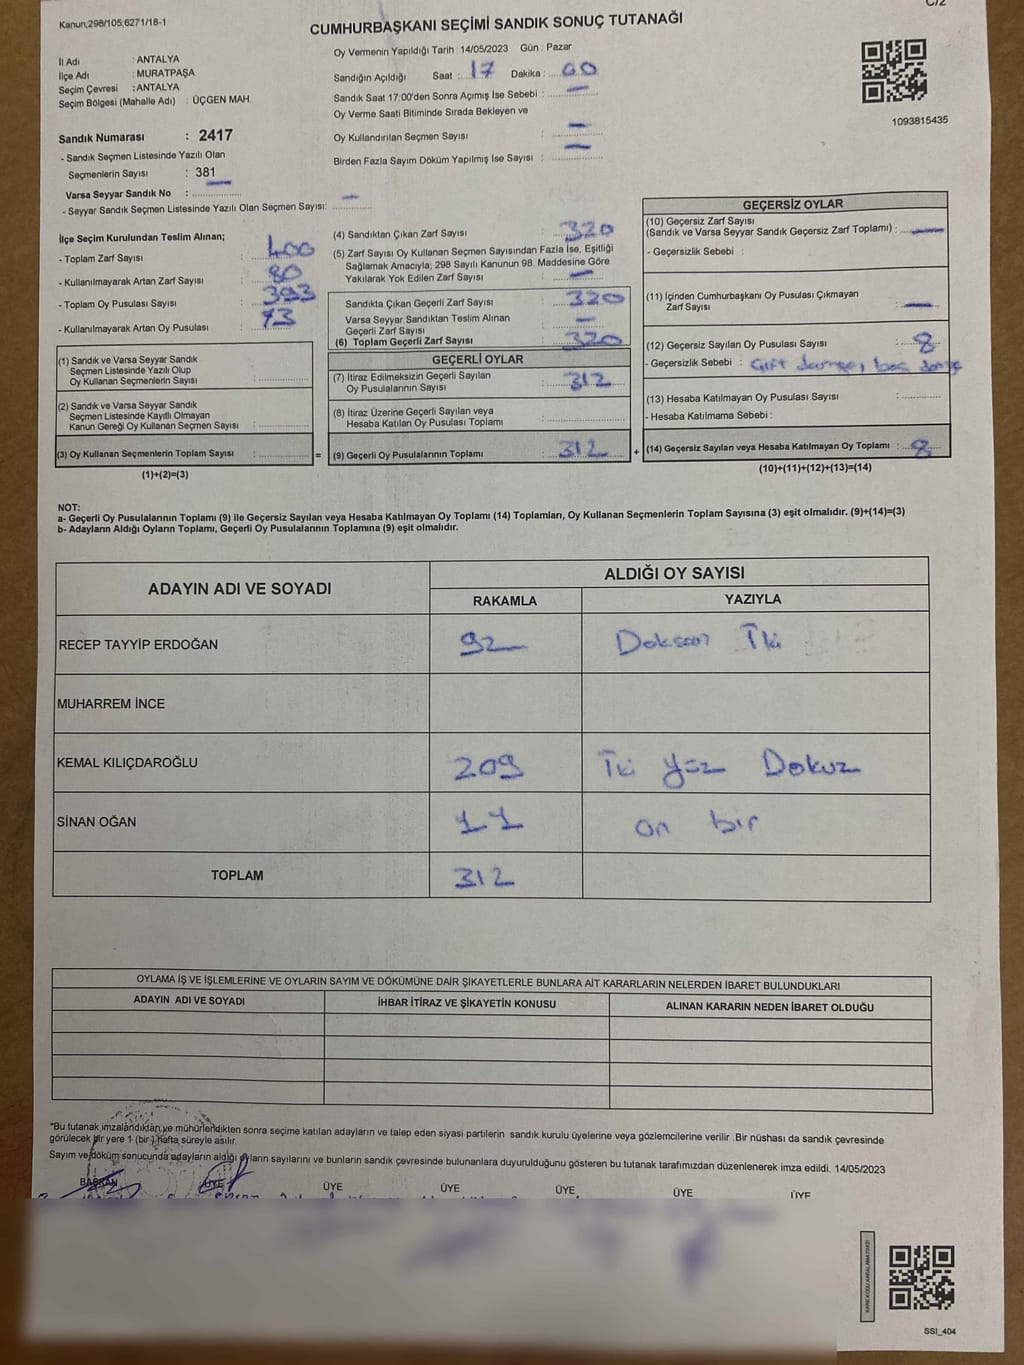 C/2
Kanun;298/105;6271/18-1
CUMHURBAŞKANI SEÇİMİ SANDIK SONUÇ TUTANAĞI
İl Adı : ANTALYA
İlçe Adı : MURATPAŞA
Seçim Çevresi : ANTALYA
Seçim Bölgesi (Mahalle Adı) : ÜÇGEN MAH.
Sandık Numarası : 2417
- Sandık Seçmen Listesinde Yazılı Olan
Seçmenlerin Sayısı : 381
Varsa Seyyar Sandık No : —
- Seyyar Sandık Seçmen Listesinde Yazılı Olan Seçmen Sayısı: —
Oy Vermenin Yapıldığı Tarih : 14/05/2023 Gün : Pazar
Sandığın Açıldığı Saat : 17 Dakika : 00
Sandık Saat 17:00'den Sonra Açımış İse Sebebi : —
Oy Verme Saati Bitiminde Sırada Bekleyen ve
Oy Kullandırılan Seçmen Sayısı : —
Birden Fazla Sayım Döküm Yapılmış İse Sayısı : —
1093815435
İlçe Seçim Kurulundan Teslim Alınan;
- Toplam Zarf Sayısı : 400
- Kullanılmayarak Artan Zarf Sayısı : 80
- Toplam Oy Pusulası Sayısı : 393
- Kullanılmayarak Artan Oy Pusulası : 73
(1) Sandık ve Varsa Seyyar Sandık
Seçmen Listesinde Yazılı Olup
Oy Kullanan Seçmenlerin Sayısı :
(2) Sandık ve Varsa Seyyar Sandık
Seçmen Listesinde Kayıtlı Olmayan
Kanun Gereği Oy Kullanan Seçmen Sayısı :
(3) Oy Kullanan Seçmenlerin Toplam Sayısı : =
(1)+(2)=(3)
(4) Sandıktan Çıkan Zarf Sayısı : 320
(5) Zarf Sayısı Oy Kullanan Seçmen Sayısından Fazla İse, Eşitliği
Sağlamak Amacıyla; 298 Sayılı Kanunun 98. Maddesine Göre
Yakılarak Yok Edilen Zarf Sayısı : —
Sandıkta Çıkan Geçerli Zarf Sayısı : 320
Varsa Seyyar Sandıktan Teslim Alınan
Geçerli Zarf Sayısı : —
(6) Toplam Geçerli Zarf Sayısı : 320
GEÇERLİ OYLAR
(7) İtiraz Edilmeksizin Geçerli Sayılan
Oy Pusulalarının Sayısı : 312
(8) İtiraz Üzerine Geçerli Sayılan veya
Hesaba Katılan Oy Pusulası Toplamı :
(9) Geçerli Oy Pusulalarının Toplamı : 312 +
GEÇERSİZ OYLAR
(10) Geçersiz Zarf Sayısı
(Sandık ve Varsa Seyyar Sandık Geçersiz Zarf Toplamı) : —
- Geçersizlik Sebebi :
(11) İçinden Cumhurbaşkanı Oy Pusulası Çıkmayan
Zarf Sayısı : —
(12) Geçersiz Sayılan Oy Pusulası Sayısı : 8
- Geçersizlik Sebebi : Çift damga, boş
(13) Hesaba Katılmayan Oy Pusulası Sayısı :
- Hesaba Katılmama Sebebi :
(14) Geçersiz Sayılan veya Hesaba Katılmayan Oy Toplamı : 8
(10)+(11)+(12)+(13)=(14)
NOT:
a- Geçerli Oy Pusulalarının Toplamı (9) ile Geçersiz Sayılan veya Hesaba Katılmayan Oy Toplamı (14) Toplamları, Oy Kullanan Seçmenlerin Toplam Sayısına (3) eşit olmalıdır. (9)+(14)=(3)
b- Adayların Aldığı Oyların Toplamı, Geçerli Oy Pusulalarının Toplamına (9) eşit olmalıdır.
ADAYIN ADI VE SOYADI ALDIĞI OY SAYISI
RAKAMLA YAZIYLA
RECEP TAYYİP ERDOĞAN 92 Doksan İki
MUHARREM İNCE
KEMAL KILIÇDAROĞLU 209 İki yüz Dokuz
SİNAN OĞAN 11 on bir
TOPLAM 312
OYLAMA İŞ VE İŞLEMLERİNE VE OYLARIN SAYIM VE DÖKÜMÜNE DAİR ŞİKAYETLERLE BUNLARA AİT KARARLARIN NELERDEN İBARET BULUNDUKLARI
ADAYIN ADI VE SOYADI İHBAR İTİRAZ VE ŞİKAYETİN KONUSU ALINAN KARARIN NEDEN İBARET OLDUĞU
*Bu tutanak imzalandıktan ve mühürlendikten sonra seçime katılan adayların ve talep eden siyasi partilerin sandık kurulu üyelerine veya gözlemcilerine verilir .Bir nüshası da sandık çevresinde
görülecek bir yere 1 (bir ) hafta süreyle asılır.
Sayım ve döküm sonucunda adayların aldığı oyların sayılarını ve bunların sandık çevresinde bulunanlara duyurulduğunu gösteren bu tutanak tarafımızdan düzenlenerek imza edildi. 14/05/2023
BAŞKAN ÜYE ÜYE ÜYE ÜYE ÜYE ÜYE
SSI_404